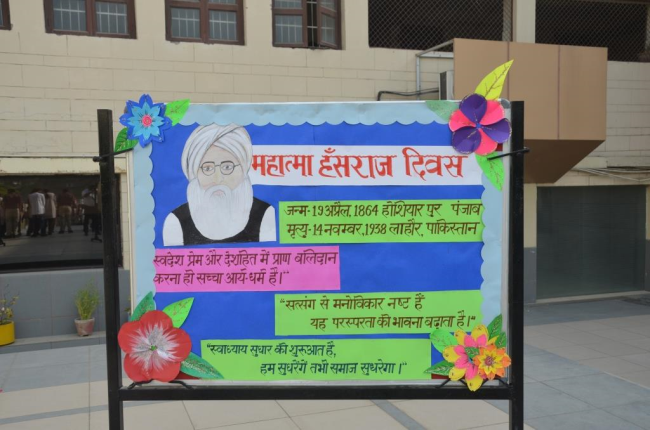 महात्मा हँसराज दिवस
जन्म-19 अप्रैल, 1864 होशियार पुर पंजाब
मृत्यु-14 नवम्बर, 1938 लाहौर, पाकिस्तान
स्वदेश प्रेम और देशहित में प्राण बलिदान
करना ही सच्चा आर्य-धर्म है।"
"सत्संग से मनोविकार नष्ट हैं
यह परस्परता की भावना बढ़ाता है।"
"स्वाध्याय सुधार की शुरूआत है,
हम सुधरेंगें तभी समाज सुधरेगा।"